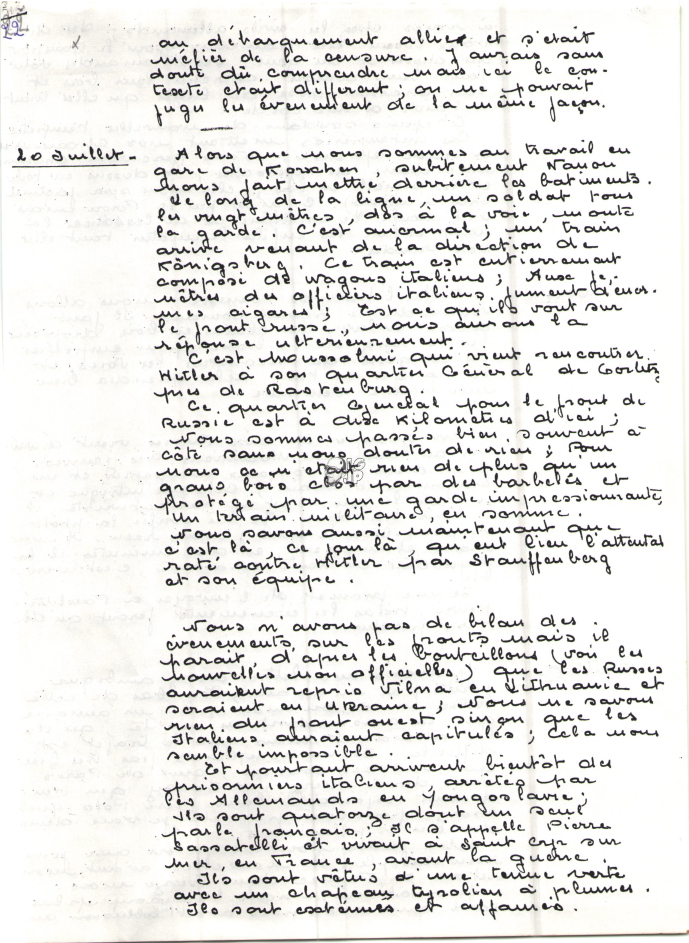 22
x
au débarquement allié et s'était
méfier de la censure. J'aurais sans
doute dû comprendre mais ici le con-
texte était différent ; on ne pouvait
juger l'évènement de la même façon.
20 Juillet - Alors que nous sommes au travail en
gare de Korschen, subitement Nanon
nous fait mettre derrière les batiments.
Le long de la ligne, un soldat tous
les vingt mètres, dos à la voie, monte
la garde. C'est anormal ; un train
arrive venant de la direction de
Königsberg. Ce train est entièrement
composé de wagons italiens ; Aux fe-
nêtres des officiers italiens fument d'énor-
mes cigares ; Est ce qu'ils vont sur
le front russe, nous aurons la
réponse ulterieurement.
C'est Moussolini qui vient rencontrer
Hitler à son quartier Général de Gorlitz
près de Rastenburg.
Ce quartier General pour le front de
Russie est à dix Kilomètres d'ici ;
Nous sommes passés bien souvent à
côté sans nous douter de rien ; Pour
nous ce n'était rien de plus qu'un
grans bois clos par des barbelés et
protégé par une garde impressionnante,
un terrain militaire, en somme.
Nous savons aussi maintenant que
c'est là, ce jour là, qu'eut lieu l'attentat
raté contre Hitler par Stauffenberg
et son équipe.
Nous n'avons pas de bilan des
évènements sur les fronts mais il
parait, d'après les bouteillons (vois les
nouvelles non officielles) que les Russes
auraient repris Vilna en Lithuanie et
seraient en Ukraine ; Nous ne savons
rien du front ouest sinon que les
Italiens auraient capitulés ; cela nous
semble impossible.
Et pourtant arrivent bientot des
prisonniers italiens, arrêtés par
les Allemands en Yougoslavie ;
Ils sont quatorze dont un seul
parle français ; Il s'appelle Pierre
Sassatelli et vivait à Saint Cyr sur
Mer, en France, avant la guerre.
Ils sont vêtus d'une tenue verte
avec un chapeau tyrolien à plumes.
Ils sont exténués et affamés.